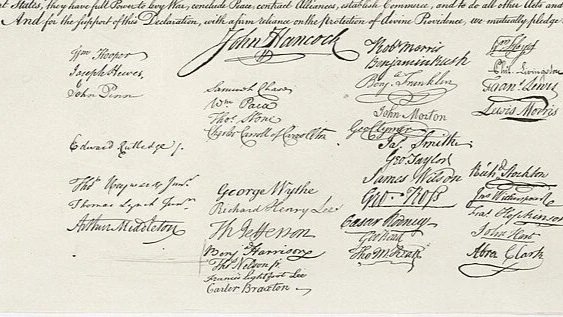 States, they have full Power to levy War, conclude Peace, contract Alliances, establish Commerce, and to do all other Acts and
And for the support of this Declaration, with a firm reliance on the protection of divine Providence, we mutually pledge
John Hancock
Wm Hooper
Joseph Hewes,
John Penn
Edward Rutledge
Thos Heyward Junr.
Thomas Lynch Junr.
Arthur Middleton
Samuel Chase
Wm Paca
Thos Stone
Charles Carroll of Carrollton
George Wythe
Richard Henry Lee
Th Jefferson
Benj Harrison
Thos Nelson jr.
Francis Lightfoot Lee
Carter Braxton
Robt Morris
Benjamin Rush
Benja Franklin
John Morton
Geo Clymer
Jas Smith
Geo Taylor
James Wilson
Geo Ross
Caesar Rodney
Geo Read
Tho M:Kean
Wm Floyd
Phil. Livingston
Frans Lewis
Lewis Morris
Richd Stockton
Jno Witherspoon
Fras Hopkinson
John Hart
Abra Clark